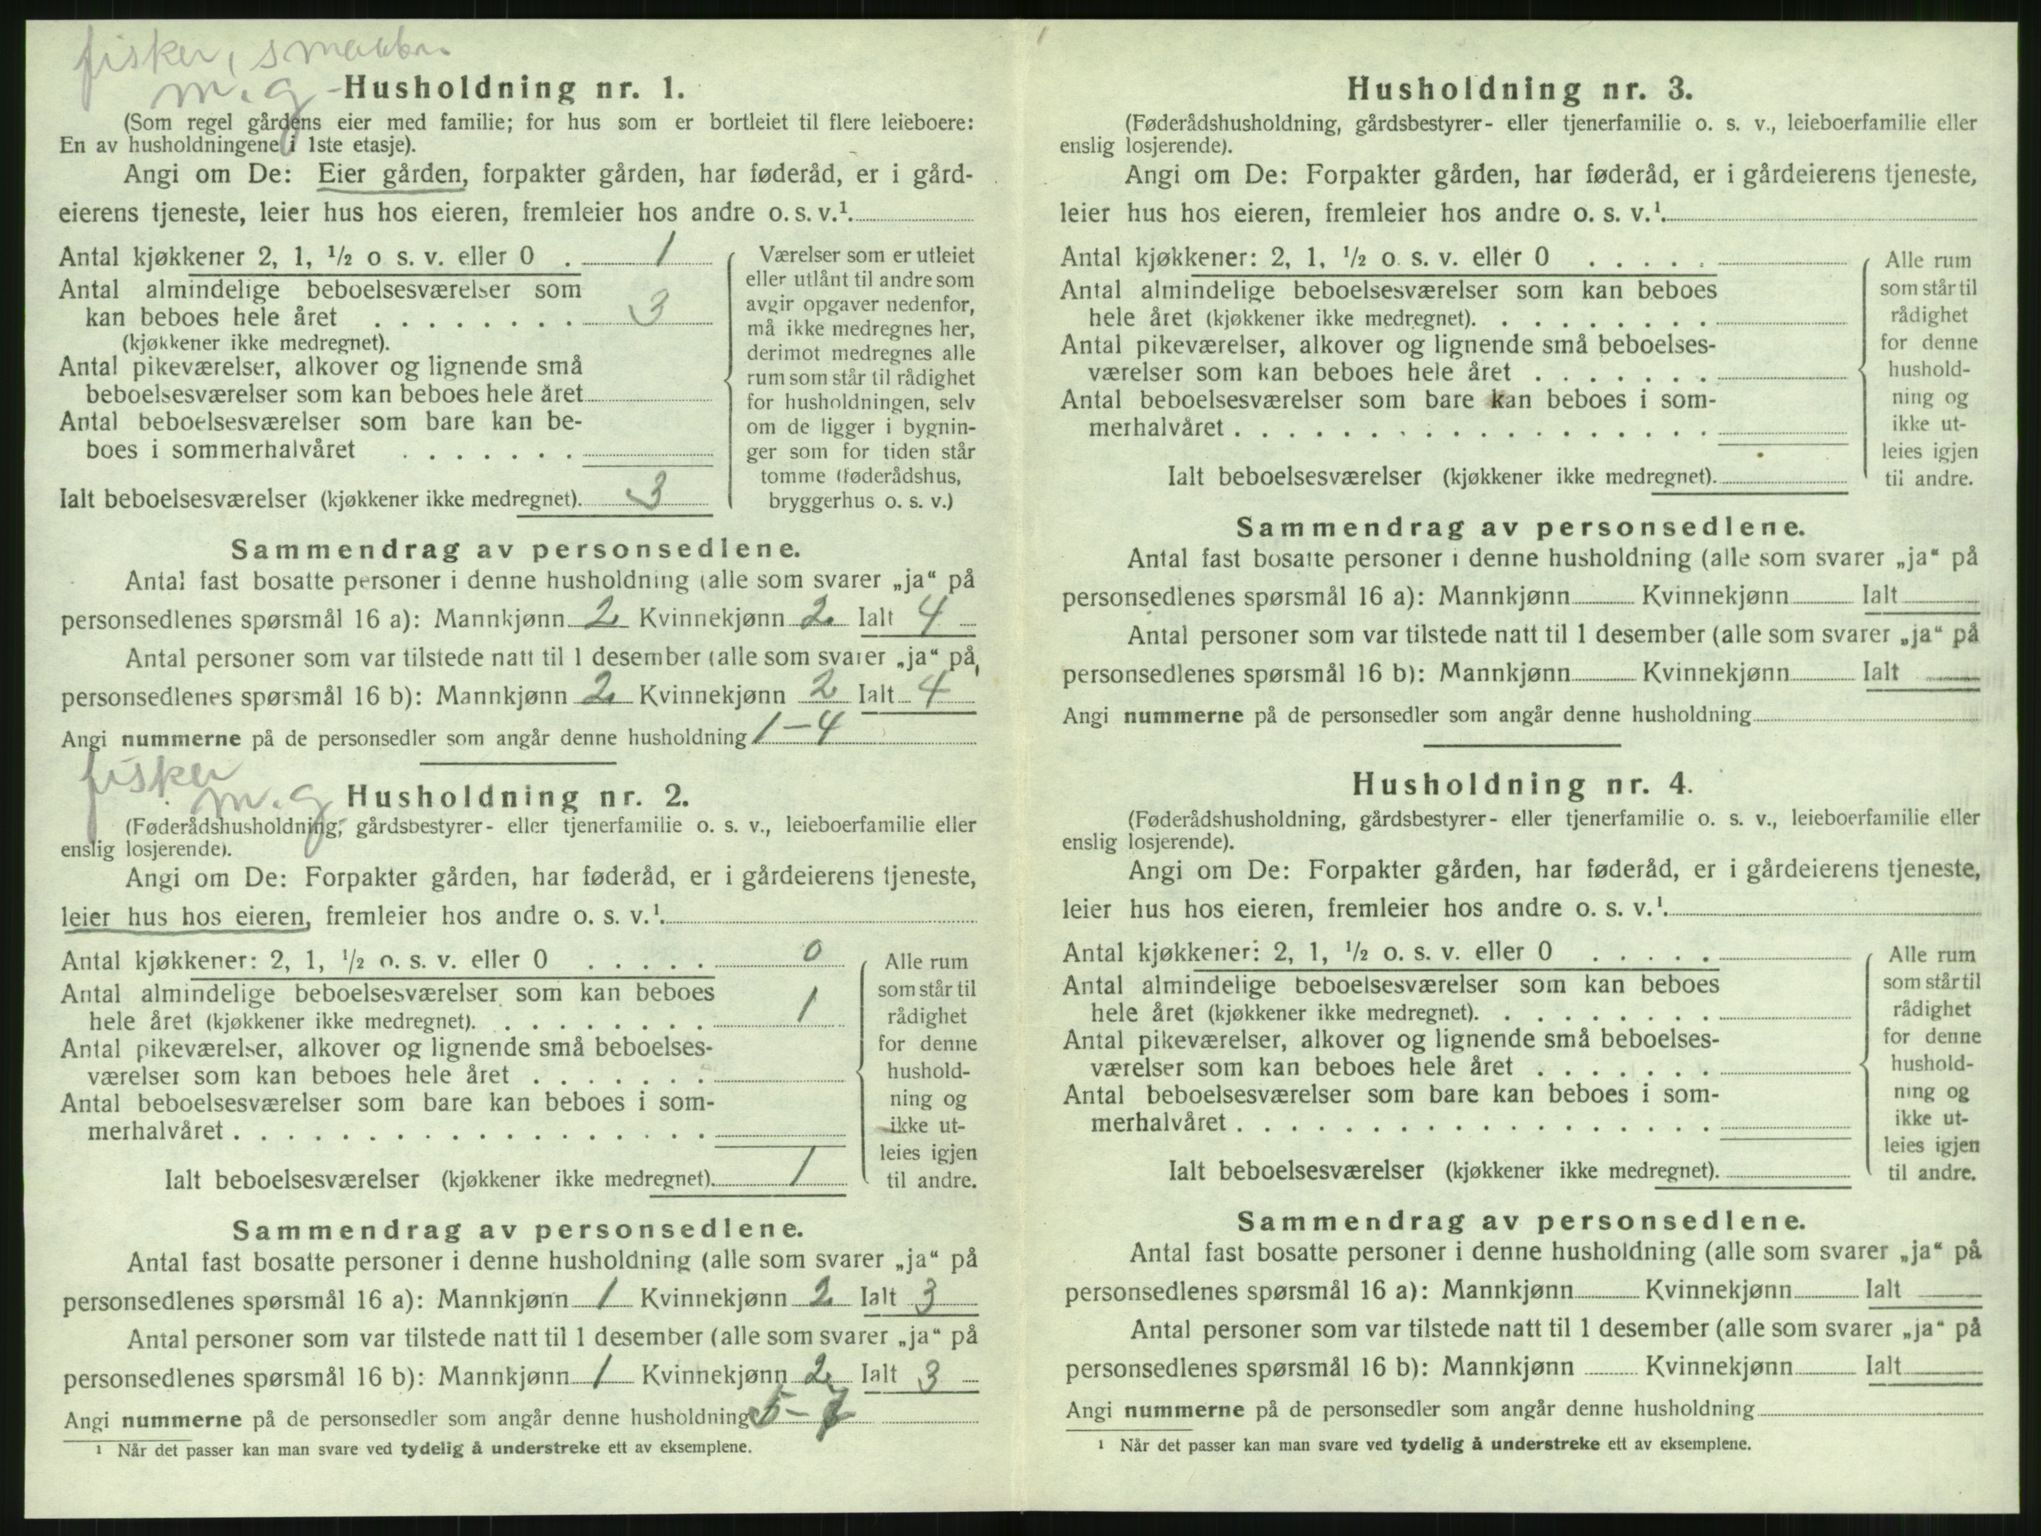 fisker, smaabr.
m. g
Husholdning nr. 1.
(Som regel gårdens eier med familie; for hus som er bortleiet til flere leieboere:
En av husholdningene i 1ste etasje).
Angi om De: Eier gården, forpakter gården, har føderåd, er i gård-
eierens tjeneste, leier hus hos eieren, fremleier hos andre o. s. v.¹.
Antal kjøkkener 2, 1, ½ o s. v. eller 0 . 1
Antal almindelige beboelsesværelser som
kan beboes hele året . . . . . . . . 3
(kjøkkener ikke medregnet).
Antal pikeværelser, alkover og lignende små
beboelsesværelser som kan beboes hele året
Antal beboelsesværelser som bare kan be-
boes i sommerhalvåret . . . . . . .
Ialt beboelsesværelser (kjøkkener ikke medregnet). 3
Værelser som er utleiet
eller utlånt til andre som
avgir opgaver nedenfor,
må ikke medregnes her,
derimot medregnes alle
rum som står til rådighet
for husholdningen, selv
om de ligger i bygnin-
ger som for tiden står
tomme (føderådshus,
bryggerhus o. s. v.)
Sammendrag av personsedlene.
Antal fast bosatte personer i denne husholdning (alle som svarer „ja“ på
personsedlenes spørsmål 16 a): Mannkjønn 2 Kvinnekjønn 2 Ialt 4
Antal personer som var tilstede natt til 1 desember (alle som svarer „ja“ på
personsedlenes spørsmål 16 b): Mannkjønn 2 Kvinnekjønn 2 Ialt 4
Angi nummerne på de personsedler som angår denne husholdning 1-4
fisker
m. g
Husholdning nr. 2.
(Føderådshusholdning, gårdsbestyrer- eller tjenerfamilie o. s. v., leieboerfamilie eller
enslig losjerende).
Angi om De: Forpakter gården, har føderåd, er i gårdeierens tjeneste,
leier hus hos eieren, fremleier hos andre o. s. v.¹.
Antal kjøkkener: 2, 1, ½ o. s. v. eller 0 . . . . . 0
Antal almindelige beboelsesværelser som kan beboes
hele året (kjøkkener ikke medregnet). . . . . . . . . 1
Antal pikeværelser, alkover og lignende små beboelses-
værelser som kan beboes hele året . . . . . . .
Antal beboelsesværelser som bare kan beboes i som-
merhalvåret . . . . . . . . . . . . . . . . . .
Ialt beboelsesværelser (kjøkkener ikke medregnet). 1
Alle rum
som står til
rådighet
for denne
hushold-
ning og
ikke ut-
leies igjen
til andre.
Sammendrag av personsedlene.
Antal fast bosatte personer i denne husholdning (alle som svarer „ja“ på
personsedlenes spørsmål 16 a): Mannkjønn 1 Kvinnekjønn 2 Ialt 3
Antal personer som var tilstede natt til 1 desember (alle som svarer „ja“ på
personsedlenes spørsmål 16 b): Mannkjønn 1 Kvinnekjønn 2 Ialt 3
Angi nummerne på de personsedler som angår denne husholdning 5-7
¹ Når det passer kan man svare ved tydelig å understreke ett av eksemplene.
Husholdning nr. 3.
(Føderådshusholdning, gårdsbestyrer- eller tjenerfamilie o. s. v., leieboerfamilie eller
enslig losjerende).
Angi om De: Forpakter gården, har føderåd, er i gårdeierens tjeneste,
leier hus hos eieren, fremleier hos andre o. s. v.¹.
Antal kjøkkener: 2, 1, ½ o. s. v. eller 0 . . . . .
Antal almindelige beboelsesværelser som kan beboes
hele året (kjøkkener ikke medregnet). . . . . . . . .
Antal pikeværelser, alkover og lignende små beboelses-
værelser som kan beboes hele året . . . . . . .
Antal beboelsesværelser som bare kan beboes i som-
merhalvåret . . . . . . . . . . . . . . . . . .
Ialt beboelsesværelser (kjøkkener ikke medregnet).
Alle rum
som står til
rådighet
for denne
hushold-
ning og
ikke ut-
leies igjen
til andre.
Sammendrag av personsedlene.
Antal fast bosatte personer i denne husholdning (alle som svarer „ja“ på
personsedlenes spørsmål 16 a): Mannkjønn Kvinnekjønn Ialt
Antal personer som var tilstede natt til 1 desember (alle som svarer „ja“ på
personsedlenes spørsmål 16 b): Mannkjønn Kvinnekjønn Ialt
Angi nummerne på de personsedler som angår denne husholdning
Husholdning nr. 4.
(Føderådshusholdning, gårdsbestyrer- eller tjenerfamilie o. s. v., leieboerfamilie eller
enslig losjerende).
Angi om De: Forpakter gården, har føderåd, er i gårdeierens tjeneste,
leier hus hos eieren, fremleier hos andre o. s. v.¹.
Antal kjøkkener: 2, 1, ½ o. s. v. eller 0 . . . . .
Antal almindelige beboelsesværelser som kan beboes
hele året (kjøkkener ikke medregnet). . . . . . . . .
Antal pikeværelser, alkover og lignende små beboelses-
værelser som kan beboes hele året . . . . . . .
Antal beboelsesværelser som bare kan beboes i som-
merhalvåret . . . . . . . . . . . . . . . . . .
Ialt beboelsesværelser (kjøkkener ikke medregnet).
Alle rum
som står til
rådighet
for denne
hushold-
ning og
ikke ut-
leies igjen
til andre.
Sammendrag av personsedlene.
Antal fast bosatte personer i denne husholdning (alle som svarer „ja“ på
personsedlenes spørsmål 16 a): Mannkjønn Kvinnekjønn Ialt
Antal personer som var tilstede natt til 1 desember (alle som svarer „ja“ på
personsedlenes spørsmål 16 b): Mannkjønn Kvinnekjønn Ialt
Angi nummerne på de personsedler som angår denne husholdning
¹ Når det passer kan man svare ved tydelig å understreke ett av eksemplene.